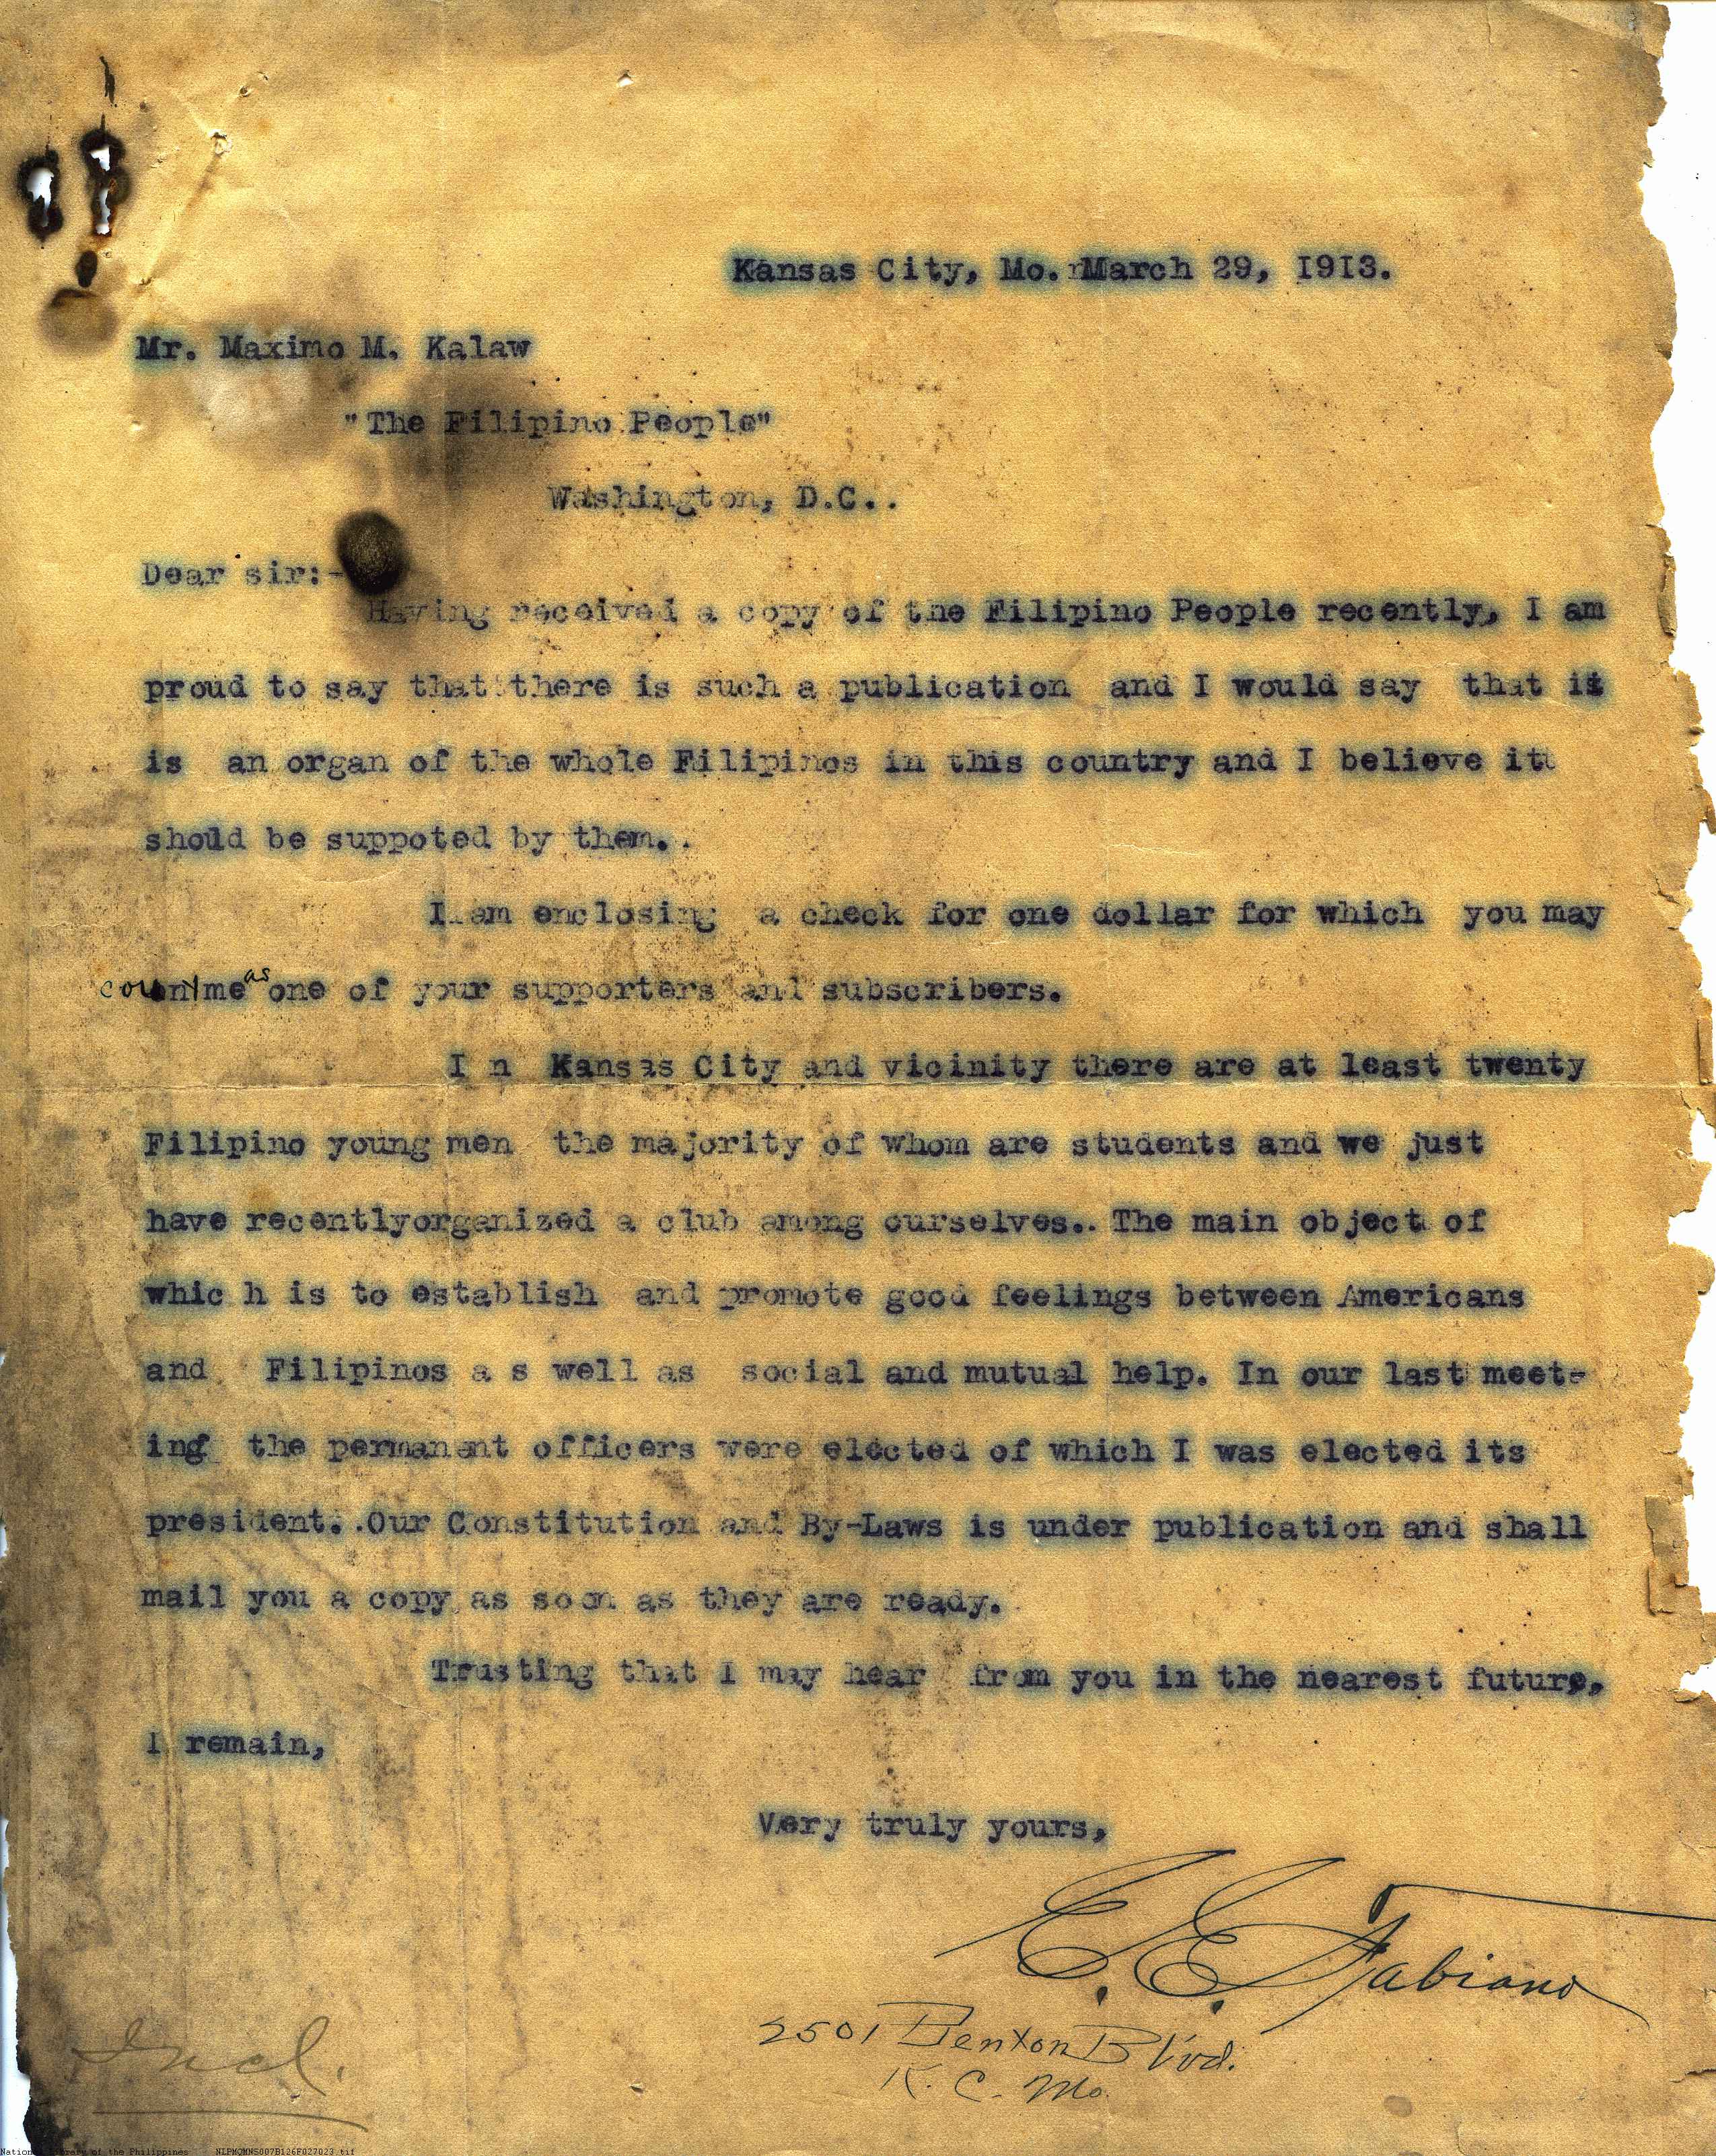 Kansas City, Mo. March 29, 1913.
Mr. Maximo M. Kalaw
"The Filipino People"
Washington, D.C..
Dear sir:-
Having received a copy of the Filipino People recently, I am
proud to say that there is such a publication and I would say that it
is an organ of the whole Filipinos in this country and I believe it
should be suppoted by them..
I am enclosing a check for one dollar for which you may
count me as one of your supporters and subscribers.
I n Kansas City and vicinity there are at least twenty
Filipino young men the majority of whom are students and we just
have recentlyorganized a club among ourselves.. The main object of
whic h is to establish and promote good feelings between Americans
and Filipinos a s well as social and mutual help. In our last meet-
ing the permanent officers were elected of which I was elected its
president. Our Constitution and By-Laws is under publication and shall
mail you a copy as soon as they are ready.
Trusting that I may hear from you in the nearest future,
I remain,
Very truly yours,
E. E. Fabiano
2501 Benton Blvd.
K. C. Mo.
Incl.
National Library of the Philippines NLPMQMNS007B126F027023.tif